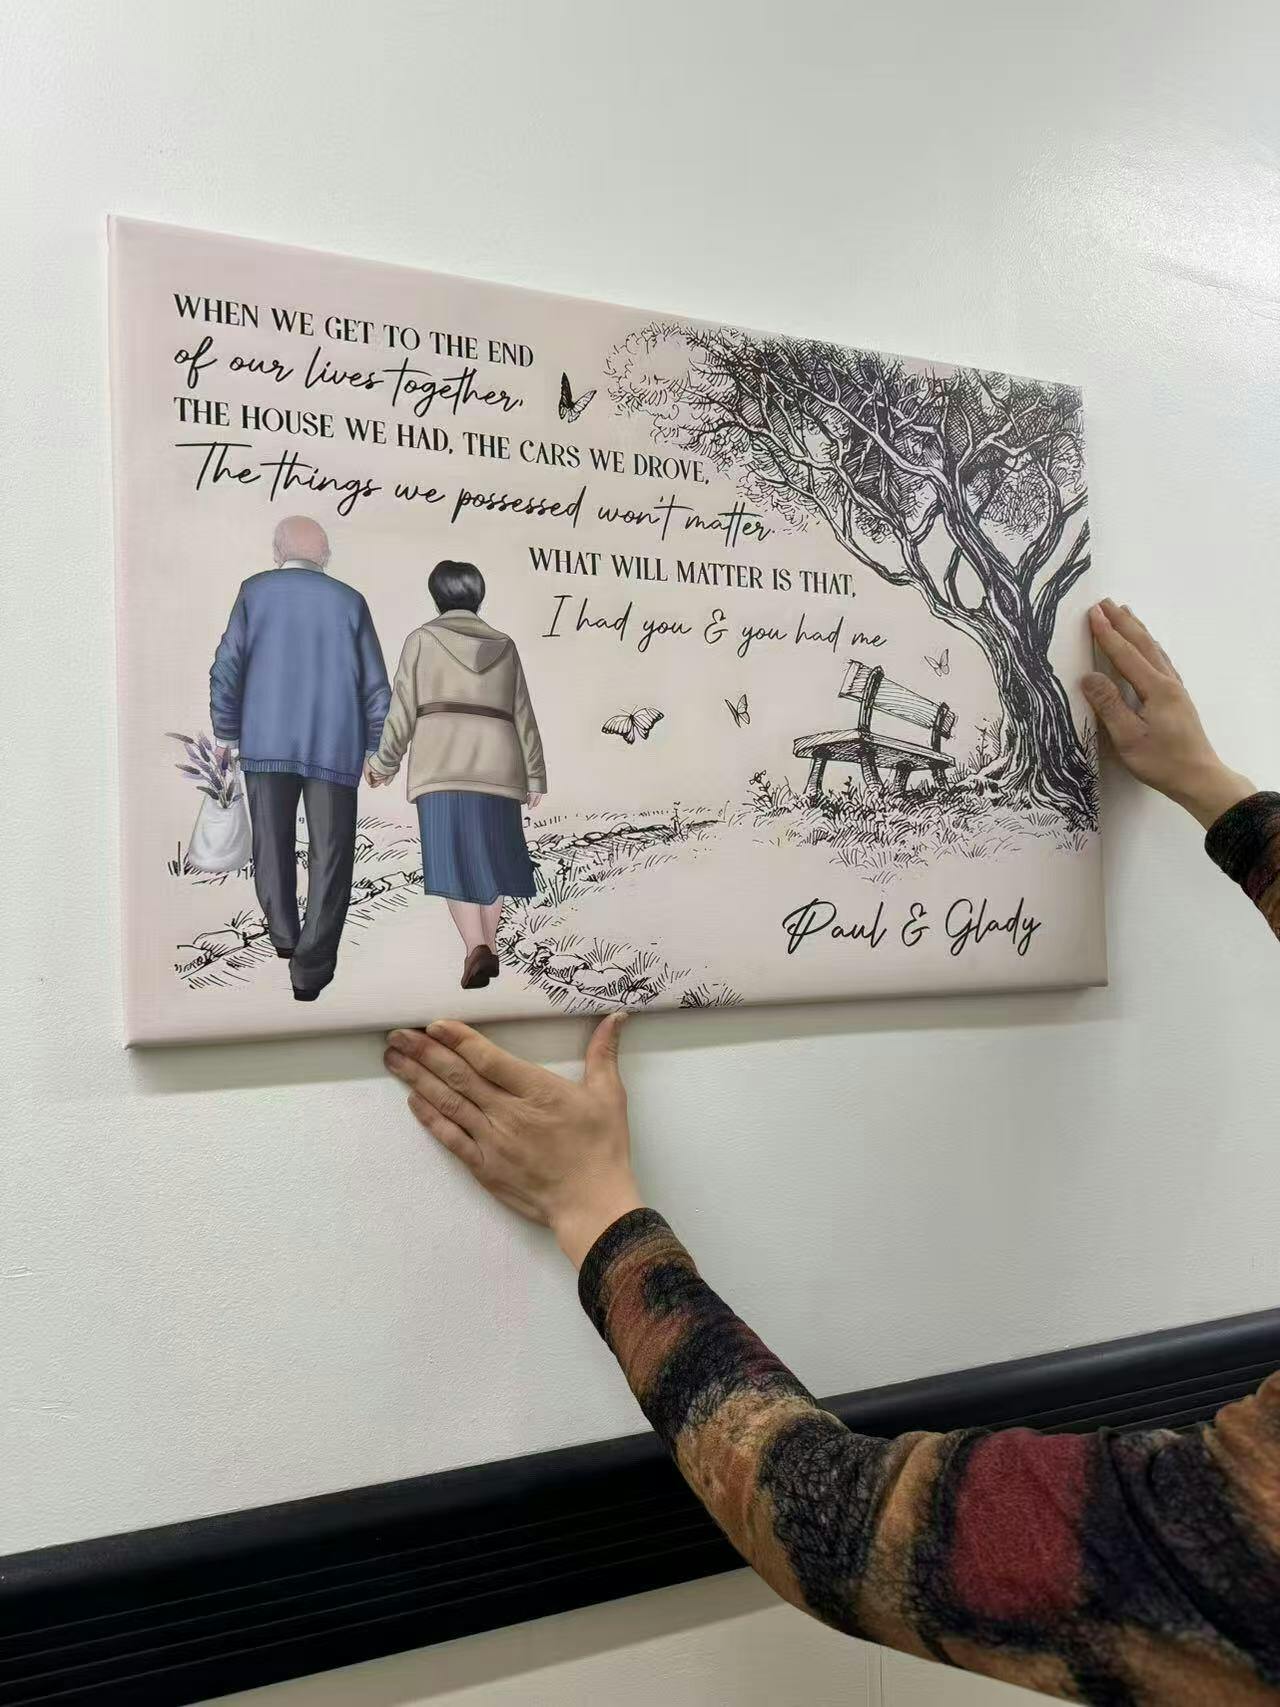 WHEN WE GET TO THE END
of our lives together,
THE HOUSE WE HAD, THE CARS WE DROVE,
The things we possessed won't matter.
WHAT WILL MATTER IS THAT,
I had you & you had me
Paul & Glady